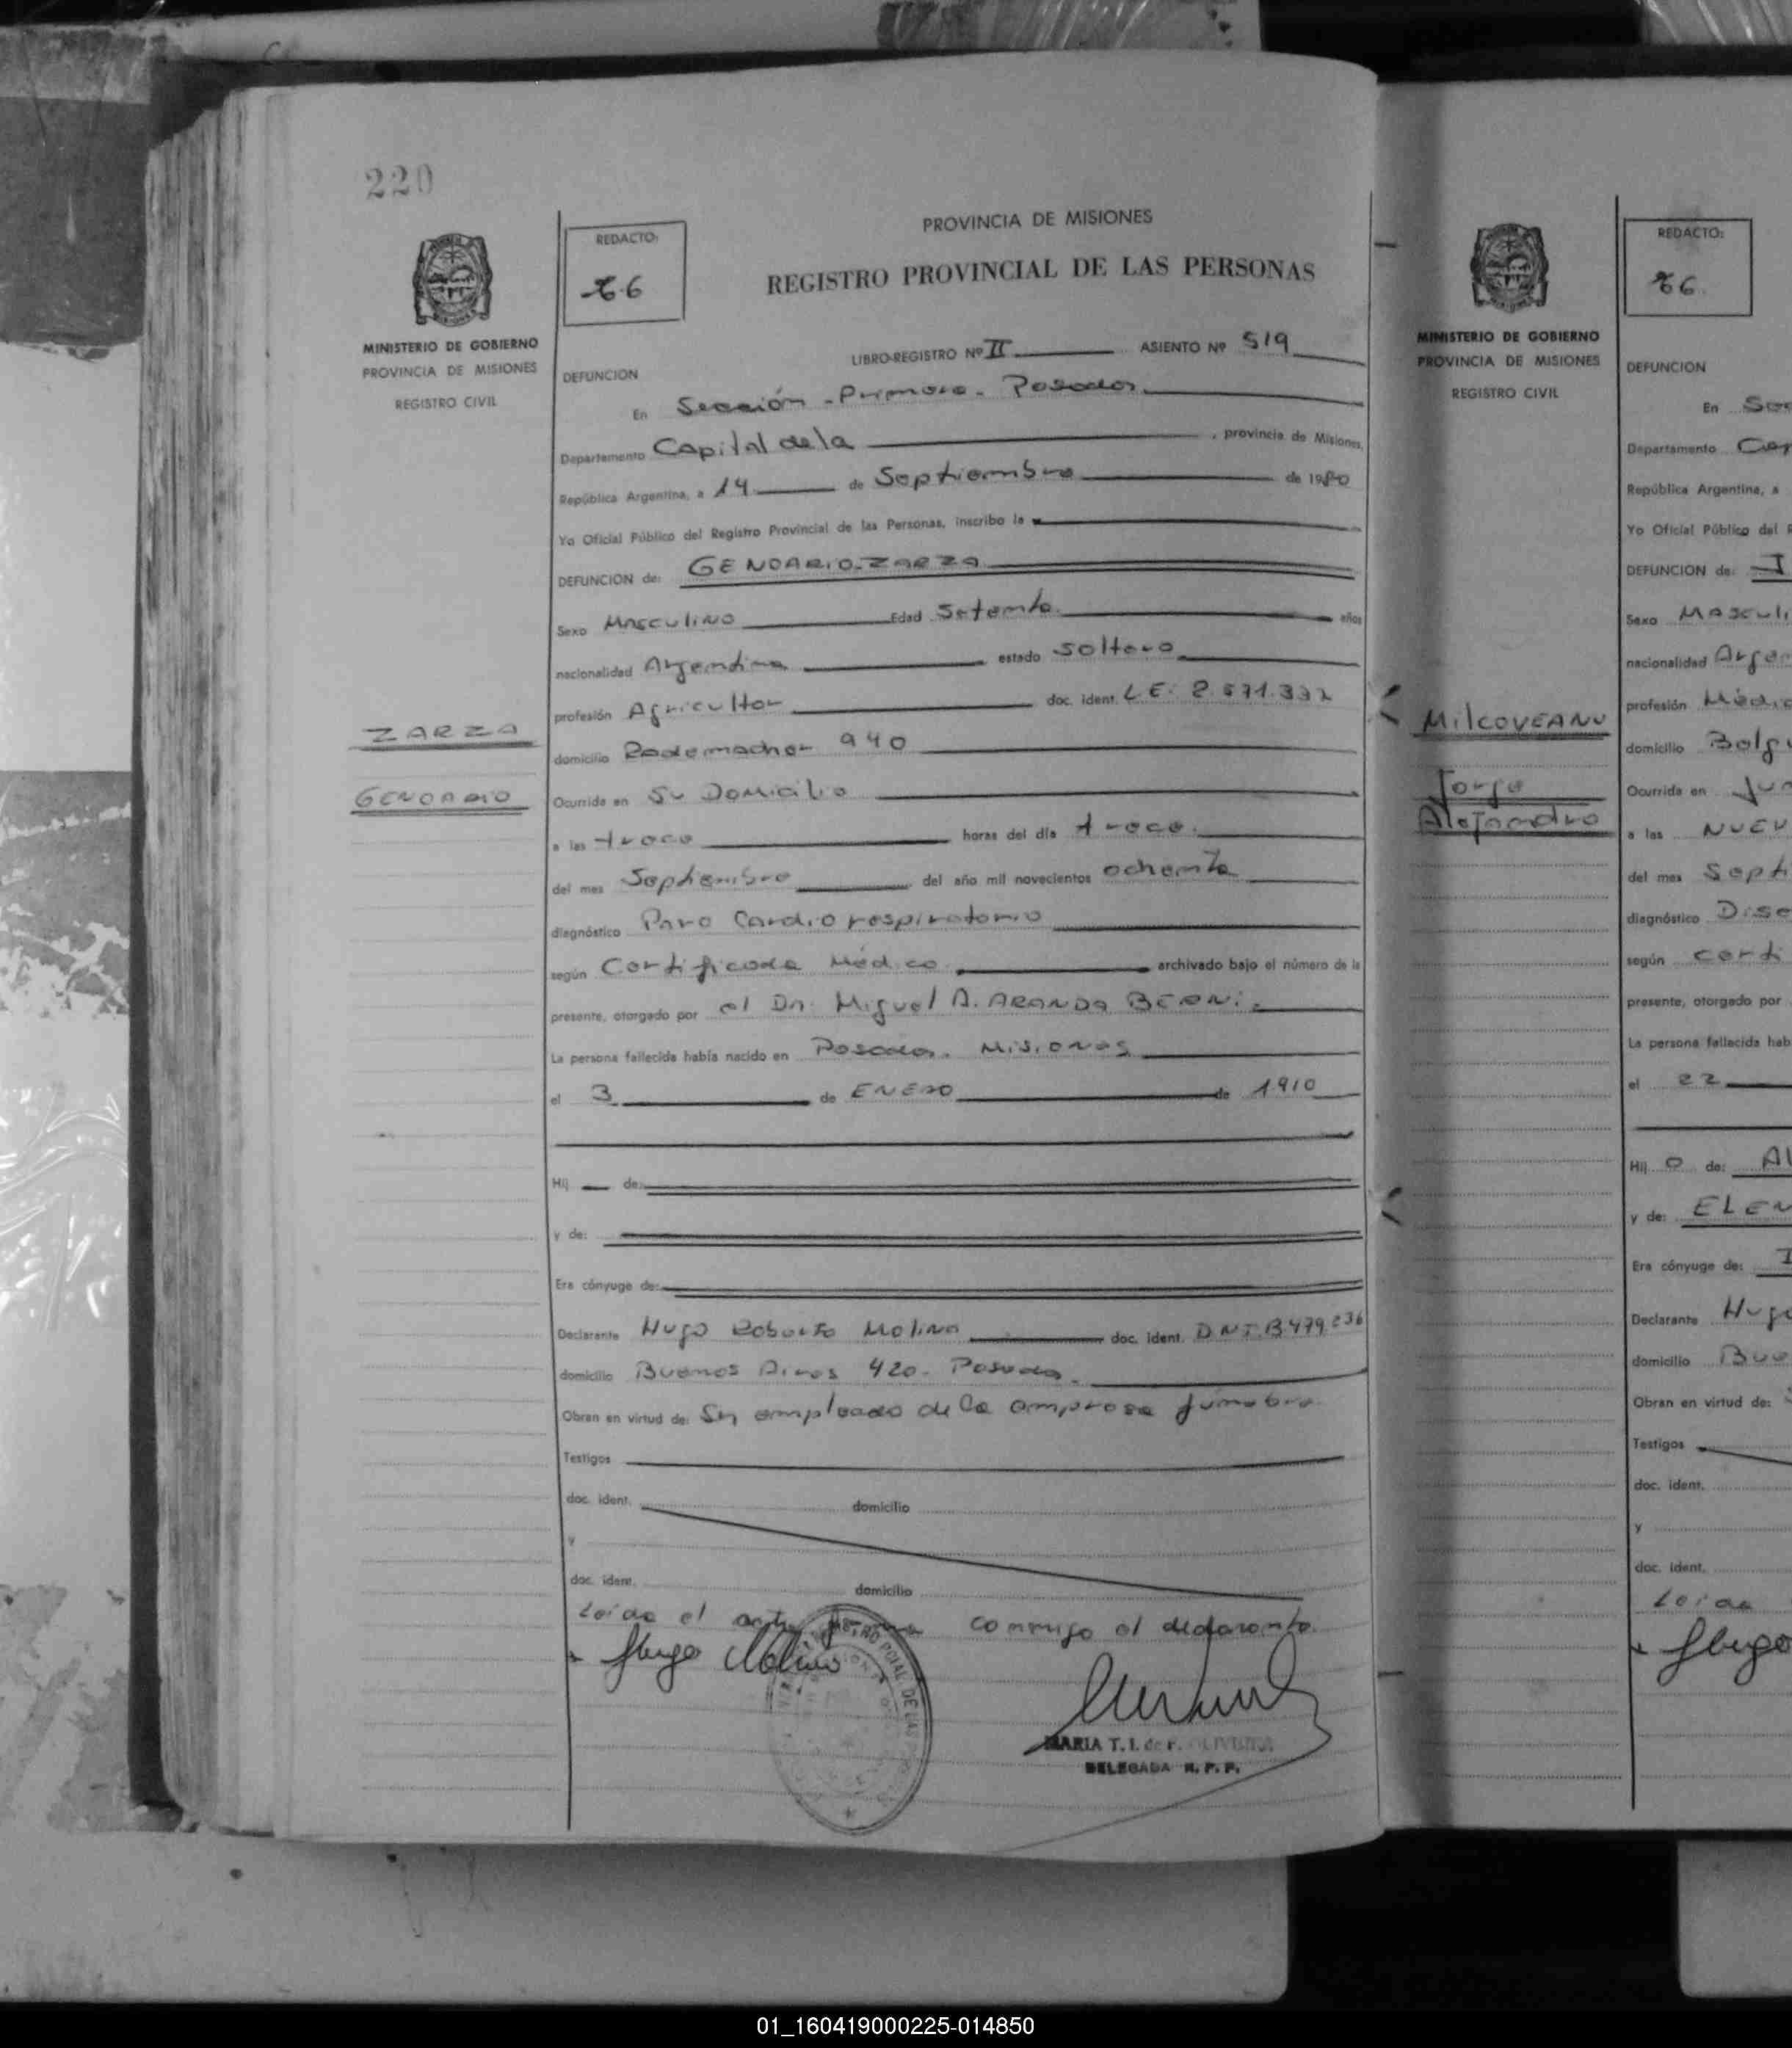 220
MINISTERIO DE GOBIERNO
PROVINCIA DE MISIONES
REGISTRO CIVIL
ZARZA
GENDARIO
REDACTO:
PROVINCIA DE MISIONES
REGISTRO PROVINCIAL DE LAS PERSONAS
LIBRO-REGISTRO Nº II ASIENTO Nº 519
DEFUNCION
En Sección - Primera - Posadas
Departamento Capital de la , provincia de Misiones,
República Argentina, a 14 de Septiembre de 1980
Yo Oficial Público del Registro Provincial de las Personas, inscribo la
DEFUNCION de: GENDARIO ZARZA
Sexo Masculino Edad Setenta años
nacionalidad Argentina estado soltero
profesión Agricultor doc. ident. L.E.
domicilio Rademacher 940
Ocurrida en Su Domicilio
a las trece horas del día trece.
del mes Septiembre del año mil novecientos ochenta
diagnóstico Paro Cardio respiratorio
según Certificado Médico archivado bajo el número de la
presente, otorgado por el Dr. Miguel A. ARANDA BERNI.
La persona fallecida había nacido en Posadas. Misiones
el 3 de ENERO de 1910
Hij de:
y de:
Era cónyuge de:
Declarante Hugo Roberto Molina doc. ident.
domicilio Buenos Aires 420. Posadas.
Obran en virtud de: Ser empleado de la empresa fúnebre.
Testigos
doc. ident. domicilio
y
doc. ident. domicilio
Leída el acta firma conmigo el declarante.
Hugo Molina
MARIA T. I. de F. OLIVEIRA
DELEGADA R. P. P.
MINISTERIO DE GOBIERNO
PROVINCIA DE MISIONES
REGISTRO CIVIL
MILCOVEANU
Jorge
Alejandro
REDACTO:
DEFUNCION
En
Departamento
República Argentina, a
Yo Oficial Público del
DEFUNCION de:
Sexo
nacionalidad
profesión
domicilio
Ocurrida en
a las
del mes
diagnóstico
según
presente, otorgado por
La persona fallecida
el 22
Hij o de:
y de:
Era cónyuge de:
Declarante Hugo
domicilio
Obran en virtud de:
Testigos
doc. ident.
y
doc. ident.
Leída
Hugo
01_160419000225-014850